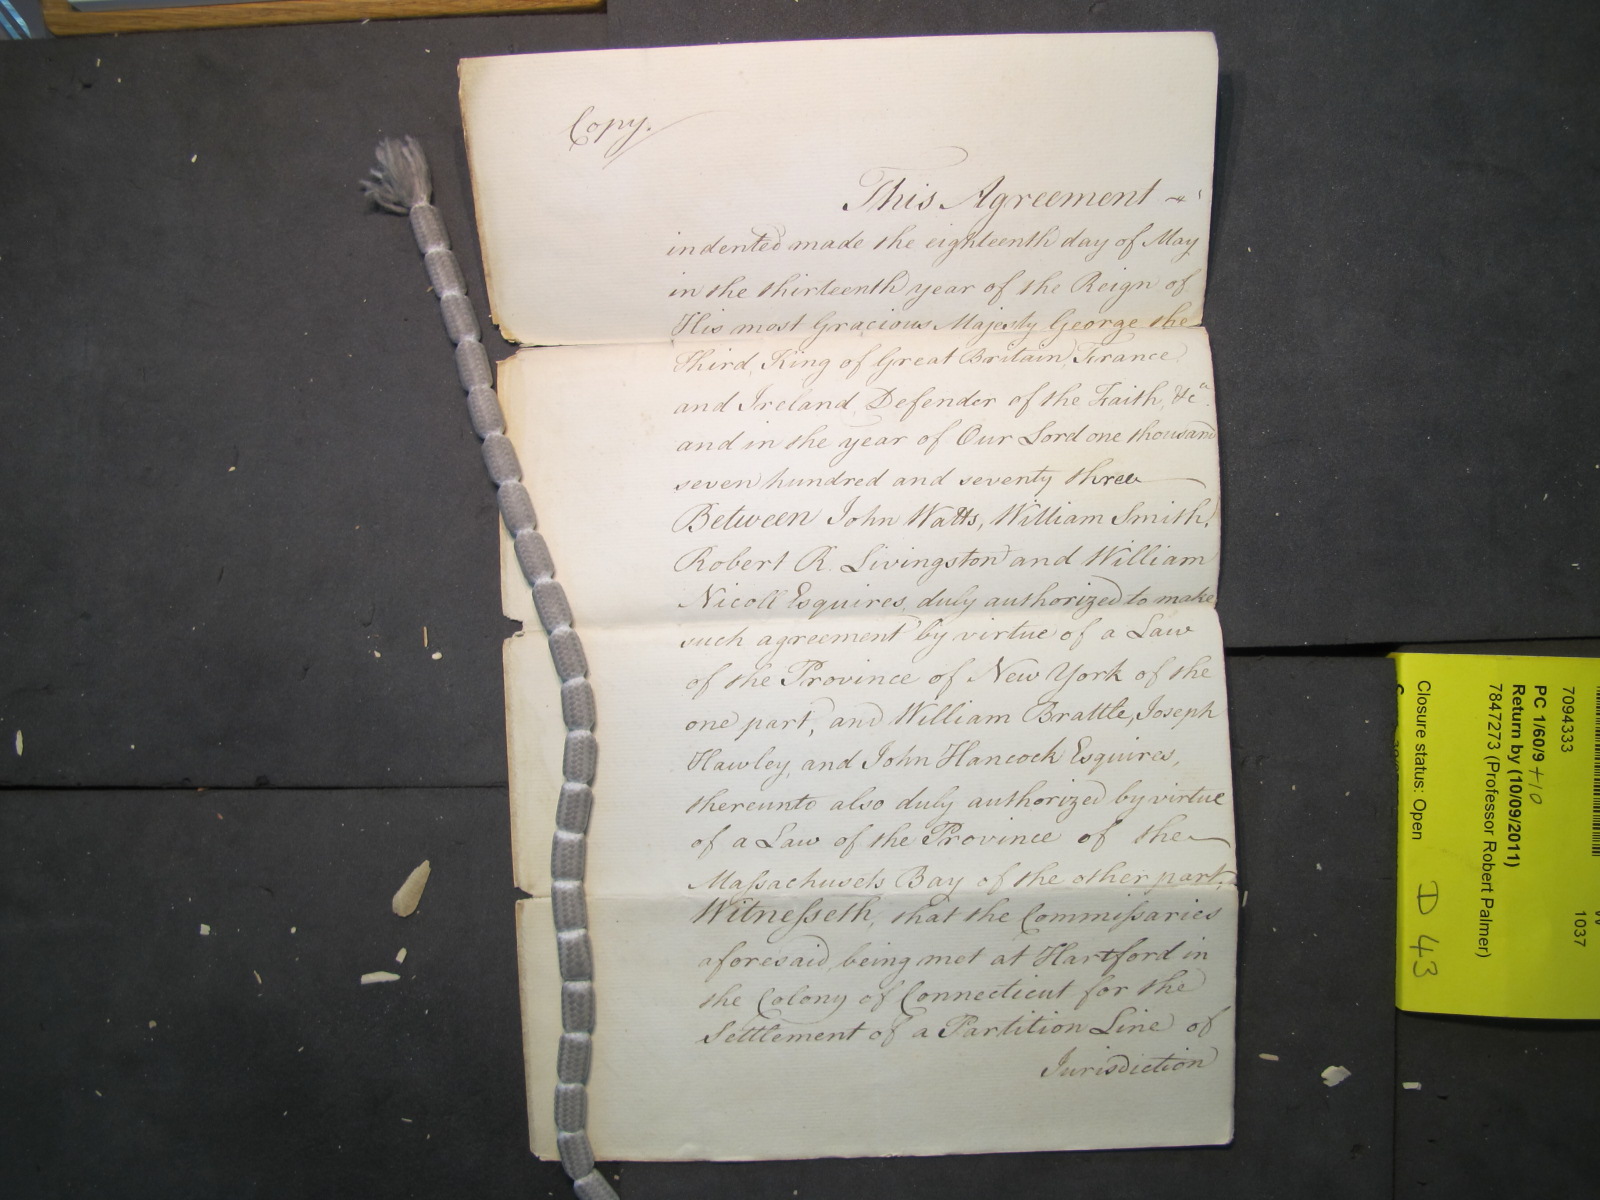 Copy.
This Agreement
indented made the eighteenth day of May
in the thirteenth year of the Reign of
His most Gracious Majesty George the
Third, King of Great Britain, France
and Ireland, Defender of the Faith, &c.a
and in the year of Our Lord one thousand
seven hundred and seventy three
Between John Watts, William Smith,
Robert R. Livingston and William
Nicoll Esquires, duly authorized to make
such agreement by virtue of a Law
of the Province of New York of the
one part, and William Brattle, Joseph
Hawley, and John Hancock Esquires,
thereunto also duly authorized by virtue
of a Law of the Province of the
Maſsachusets Bay of the other part,
Witneſseth, that the Commiſsaries
aforesaid, being met at Hartford in
the Colony of Connecticut for the
Settlement of a Partition Line of
Jurisdiction
1037
7094333
PC 1/60/9 +10
Return by (10/09/2011)
7847273 (Professor Robert Palmer)
Closure status: Open
D 43